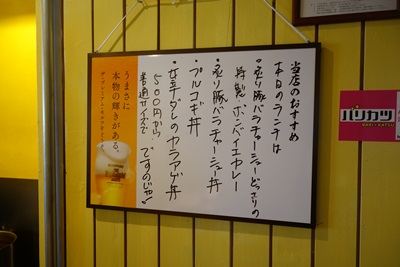 当店のおすすめ
本日のランチは
・炙り豚バラチャーシューどっさりの
特製ボンバイエカレー
・炙り豚バラチャーシュー丼
・プルコギ丼
・甘辛ダレのカラアゲ丼
500円から
普通サイズで
ですのじゃ!
うまさに
本物の輝きがある。
ザ・プレミアム・モルツ
パリカツ